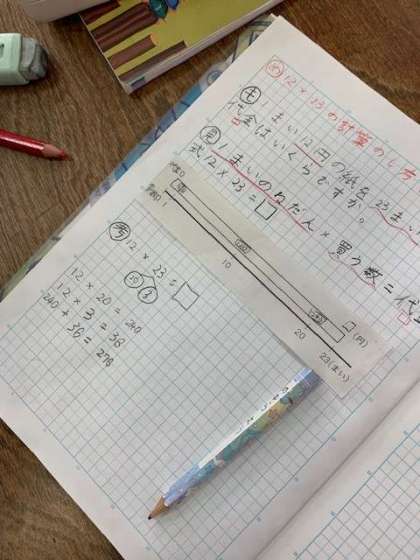 め 12×23の計算のしかた
も 1まい12円の紙を23まい
代金はいくらですか。
思 1まいのねだん×買う数=代
式 12×23=□
0
1
10
20
23(まい)
□(円)
考 12×23=□
20
3
12×20=240
12×3=38
240+36=278